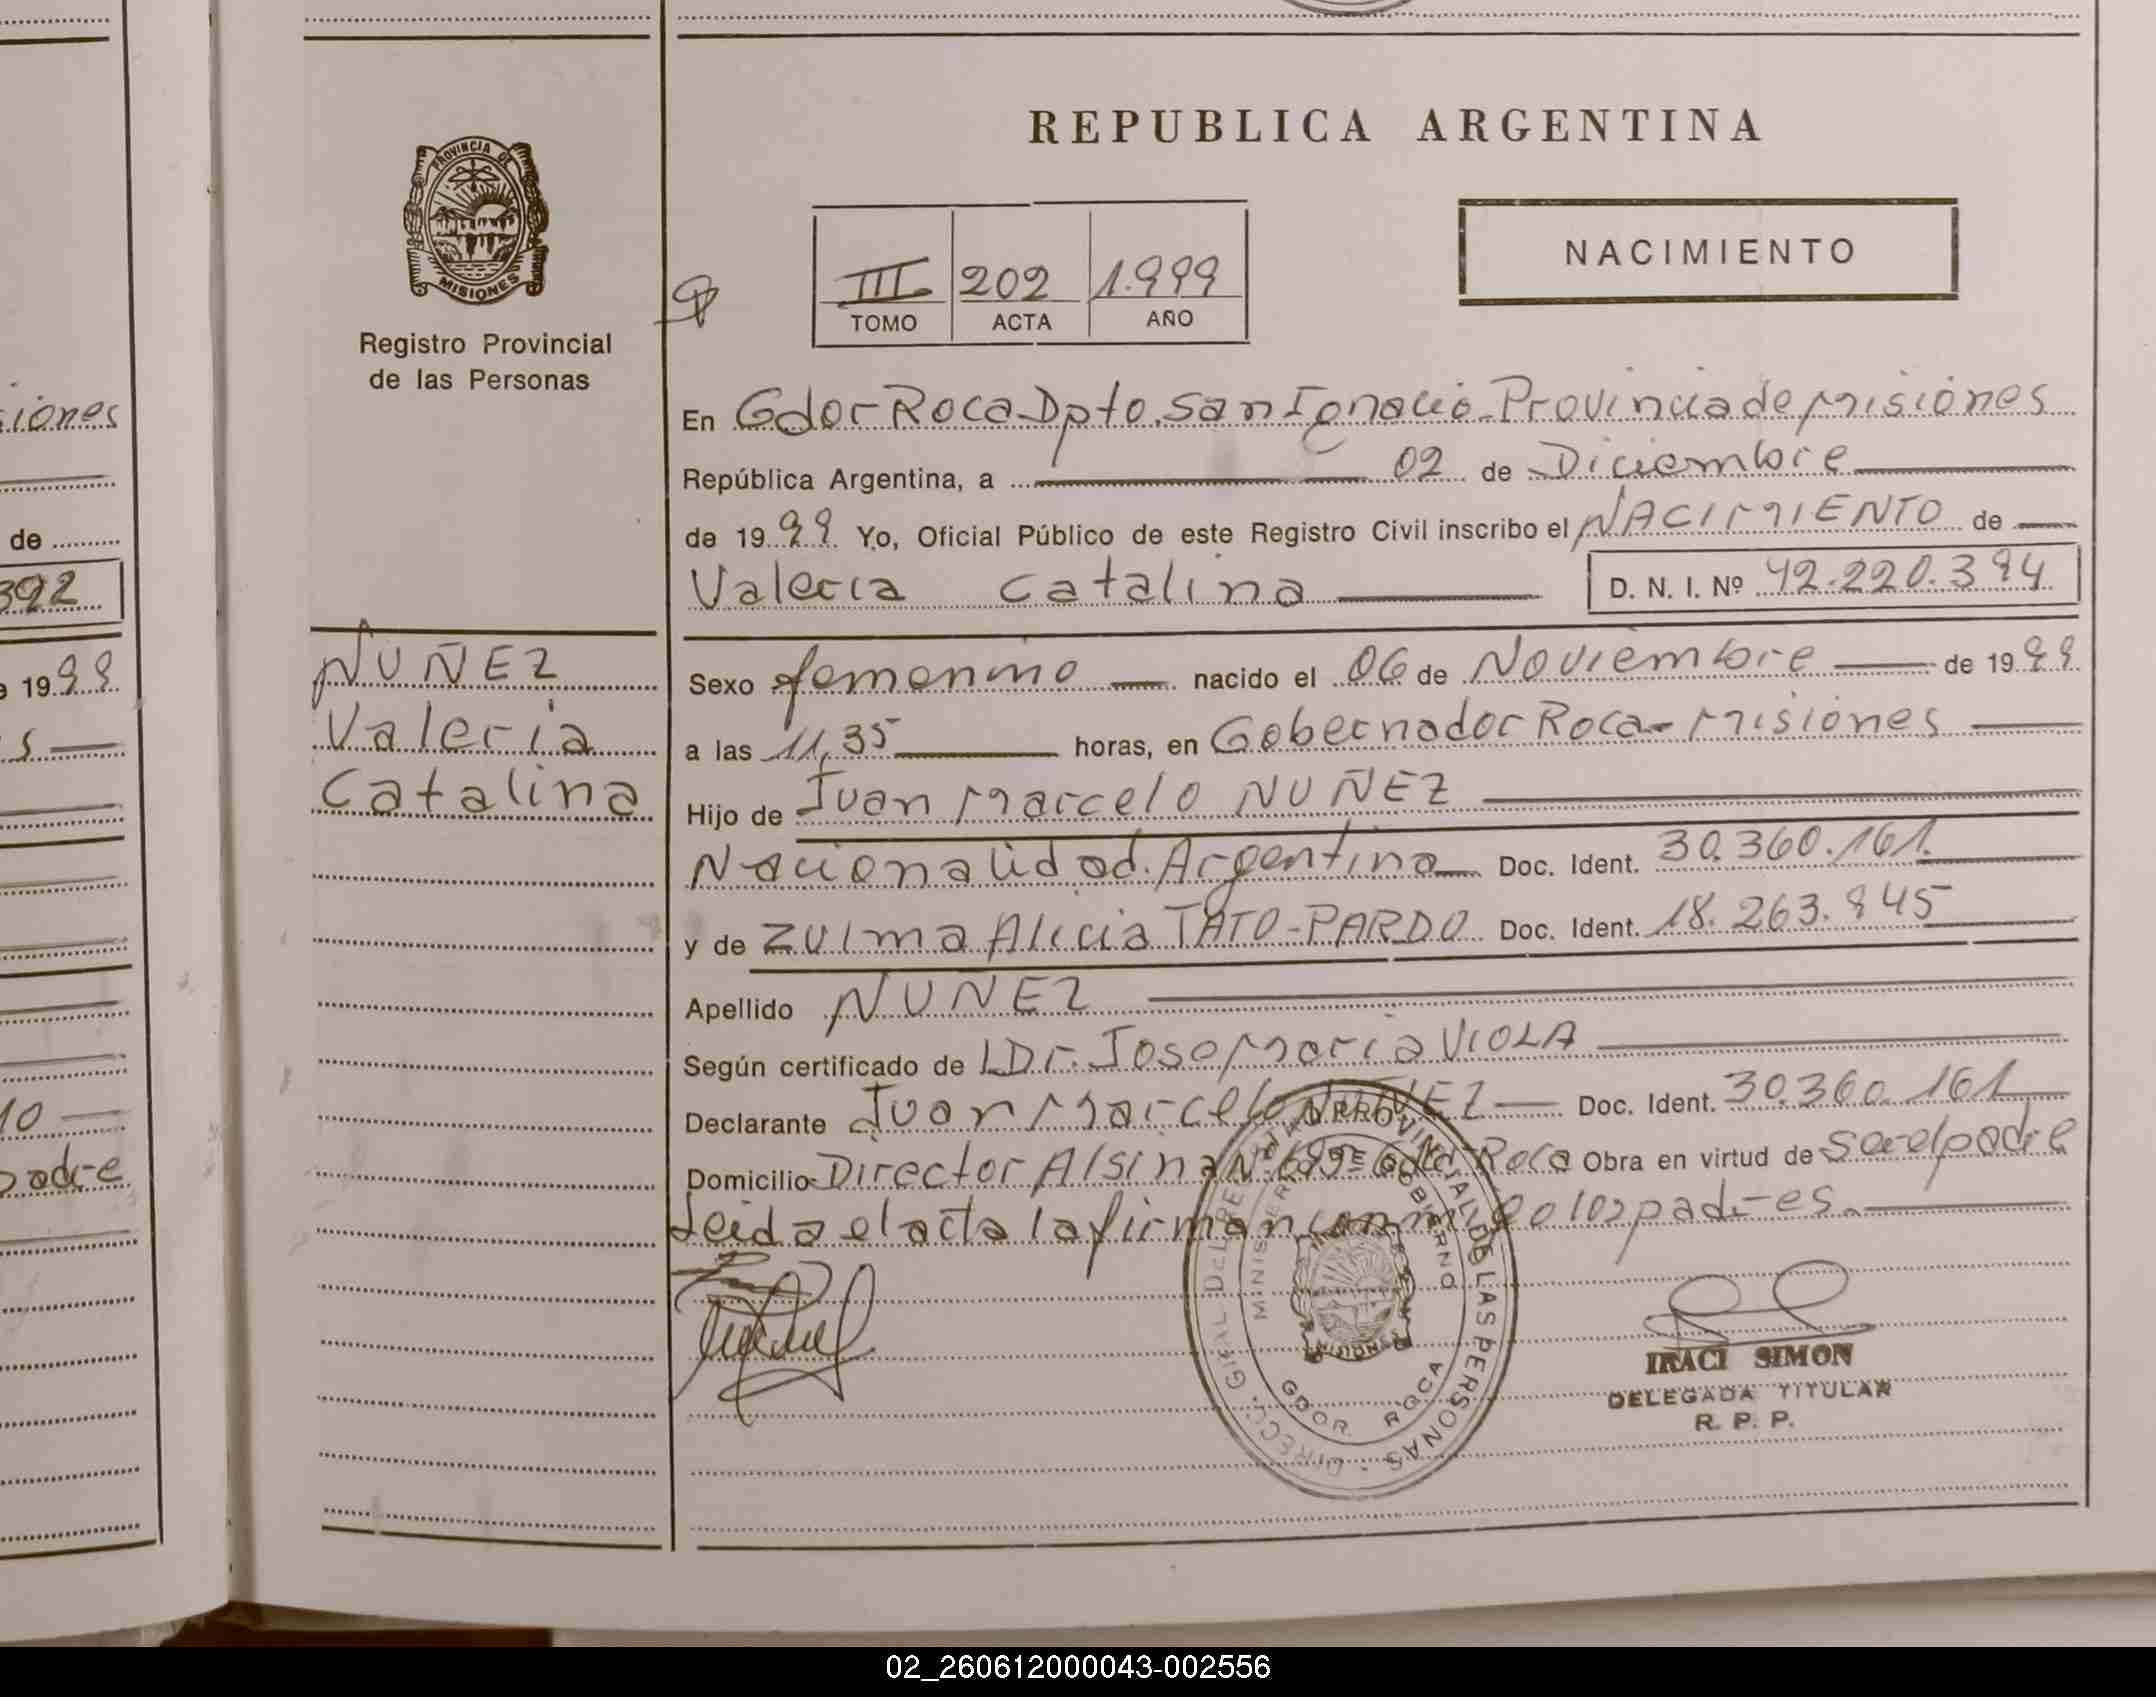 REPUBLICA ARGENTINA
PROVINCIA DE
MISIONES
Registro Provincial
de las Personas
III 202 1.999
TOMO ACTA AÑO
NACIMIENTO
En Gdor Roca Dpto. San Ignacio - Provincia de Misiones
República Argentina, a 02 de Diciembre
de 1999 Yo, Oficial Público de este Registro Civil inscribo el NACIMIENTO de
Valeria Catalina D. N. I. Nº 42.220.394
NUÑEZ
Valeria
Catalina
Sexo femenino nacido el 06 de Noviembre de 1999
a las 11,35 horas, en Gobernador Roca - Misiones
Hijo de Juan Marcelo NUÑEZ
Nacionalidad. Argentina Doc. Ident. 30.360.161.
y de Zulma Alicia TATO-PARDO Doc. Ident. 18.263.945
Apellido NUÑEZ
Según certificado de Dr. Jose Maria VIOLA
Declarante Juan Marcelo NUÑEZ Doc. Ident. 30.360.161
Domicilio Director Alsina Roca Obra en virtud de ser el padre
Leida el acta la firman conmigo los padres.
DIRECC. GRAL. DEL REGISTRO PROVINCIAL DE LAS PERSONAS
MINISTERIO DE GOBIERNO
MISIONES
GDOR. ROCA
IRACI SIMON
DELEGADA TITULAR
R. P. P.
iones
de
392
e 1999
s
10
padre
02_260612000043-002556